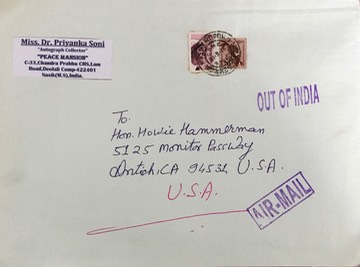 Miss. Dr. Priyanka Soni
"Autograph Collector"
"PEACE MANSION"
C-33,Chandra Prabhu CHS,Lam
Road,Deolali Camp-422401
Nasik(M.S),India.
OUT OF INDIA
To.
Hon. Howie Hammerman
5125 Monitor Passway
Antioch, CA 94531, U.S.A.
U.S.A.
AIR-MAIL